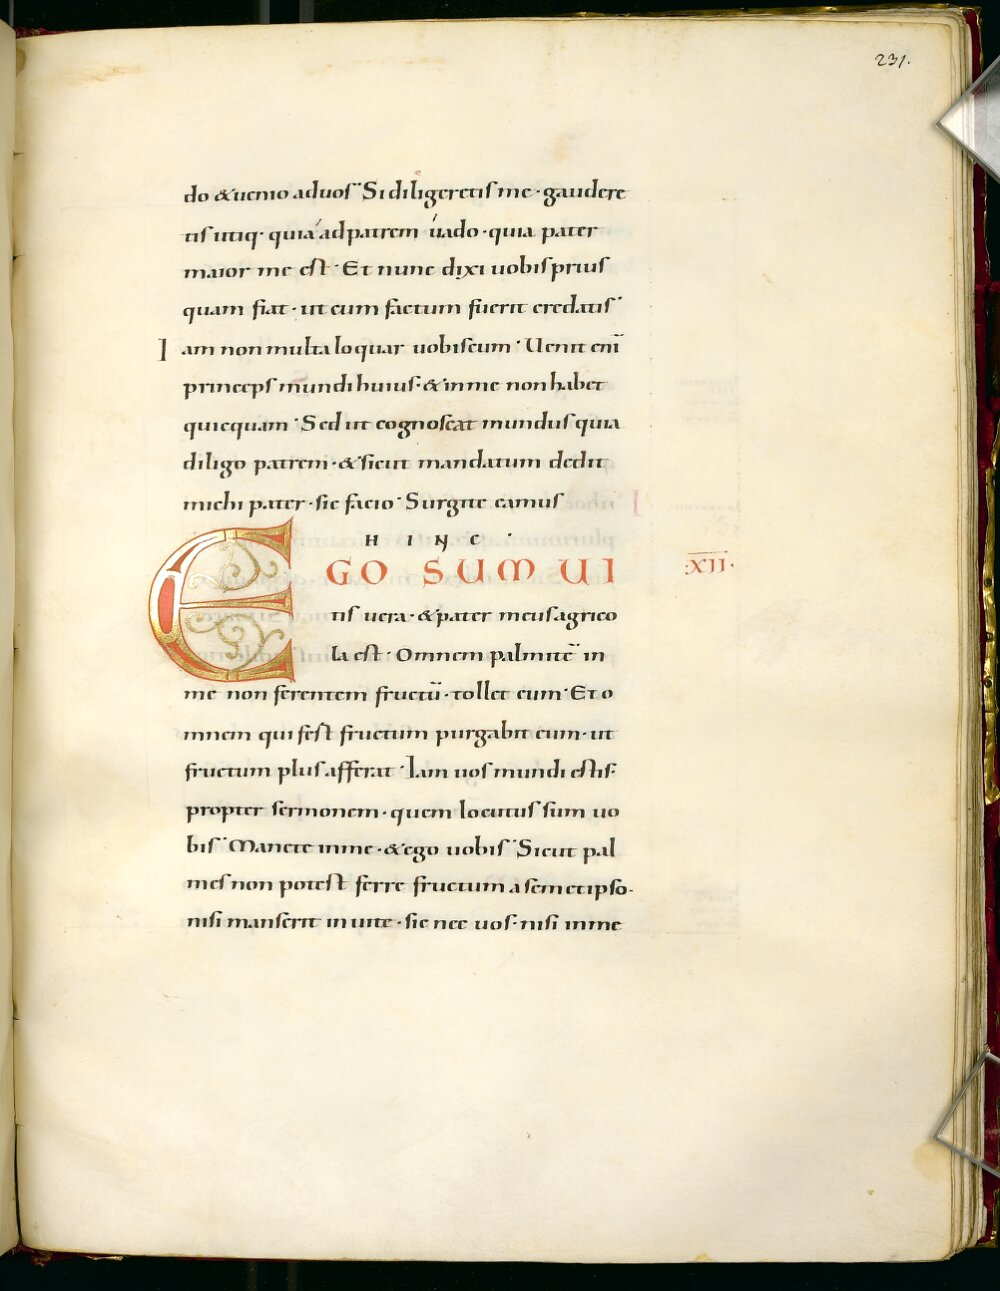 231.
do & uenio ad uos· Si diligeretis me· gaudere
tis utiq· quia ad patrem uado· quia pater
maior me est· Et nunc dixi uobis prius
quam fiat· ut cum factum fuerit credatis·
Iam non multa loquar uobiscum· Uenit eni̅
princeps mundi huius· & in me non habet
quicquam· Sed ut cognoscat mundus quia
diligo patrem· & sicut mandatum dedit
michi pater· sic facio· Surgite eamus
HINC·
EGO SUM UI
XII·
tis uera· & pater meus agrico
la est· Omnem palmite̅ in
me non ferentem fructu̅· tollet eum· Et o
mnem qui fest fructum purgabit eum· ut
fructum plus afferat· Iam uos mundi estis·
propter sermonem· quem locutus sum uo
bis· Manete in me· & ego uobis· Sicut pal
mes non potest ferre fructum a semetipso·
nisi manserit in uite· sic nec uos· nisi in me